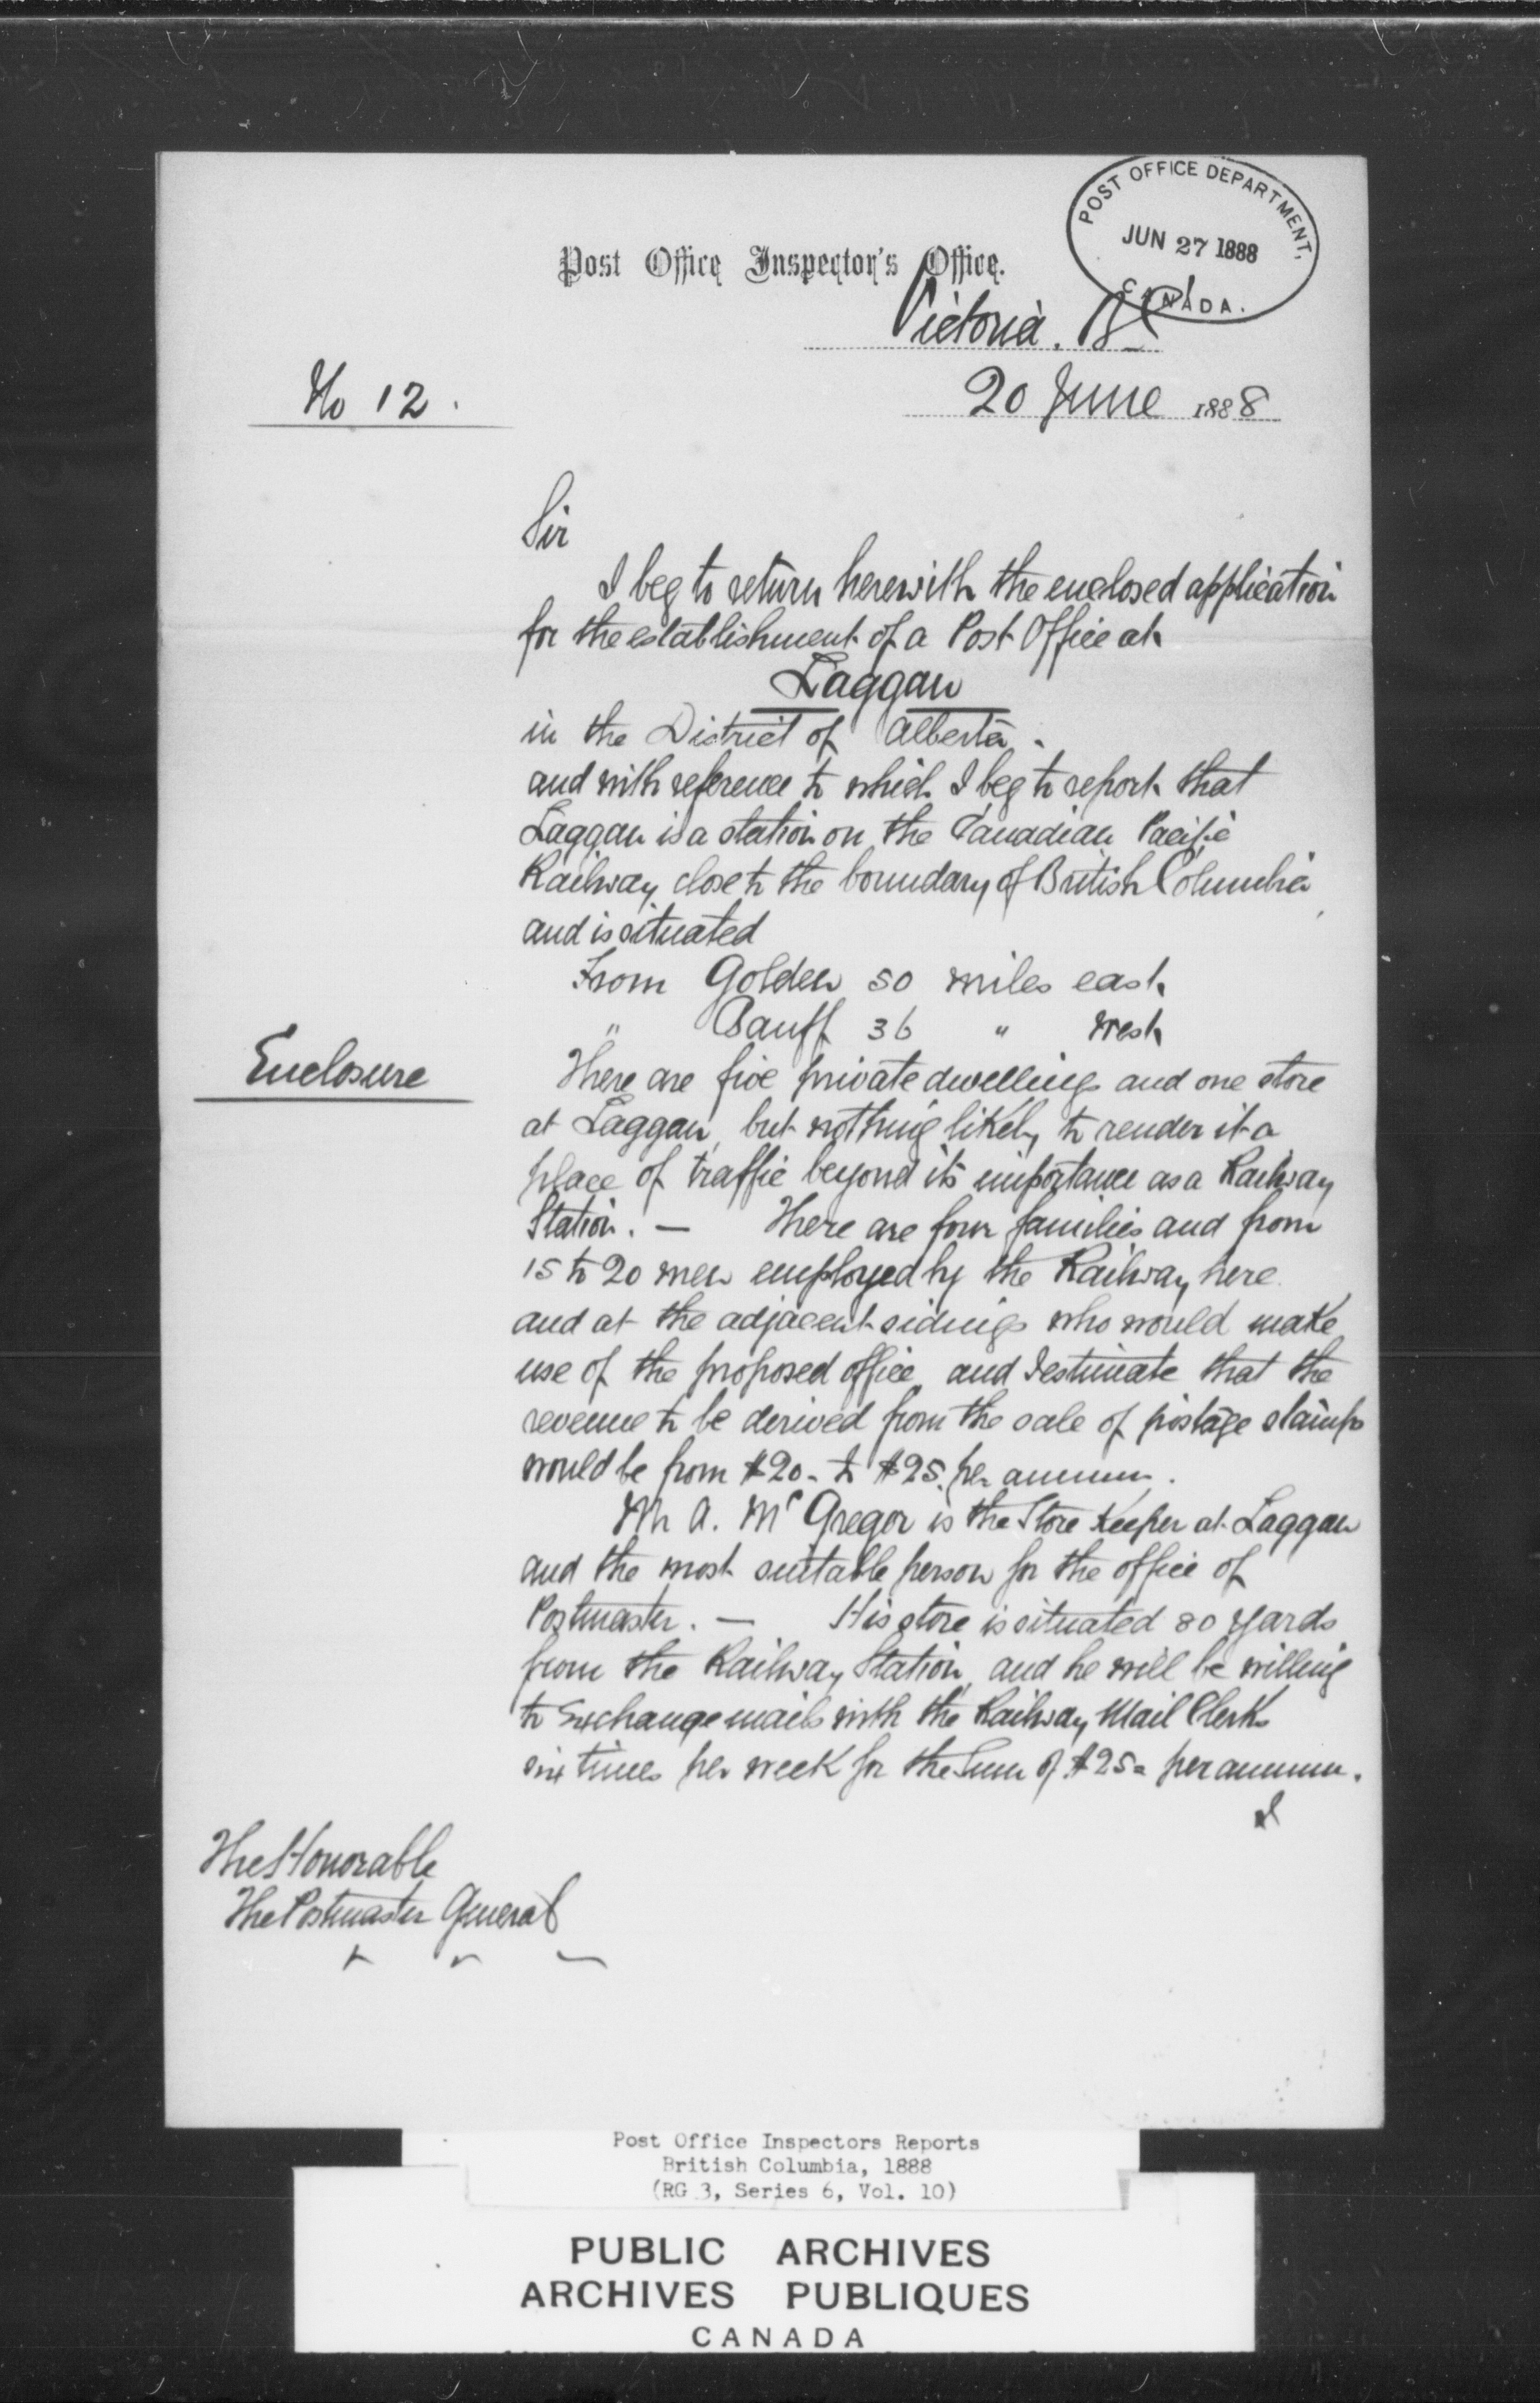 POST OFFICE DEPARTMENT,
JUN 27 1888
CANADA.
Post Office Inspector's Office.
Victoria. BC
20 June 1888
No 12.
Sir
I beg to return herewith the enclosed application
for the establishment of a Post Office at
Laggan
in the District of Alberta.
and with reference to which I beg to report that
Laggan is a station on the Canadian Pacific
Railway, close to the boundary of British Columbia,
and is situated
From Golden 50 miles east
" Banff 36 " West
Enclosure
There are five private dwellings and one store
at Laggan, but nothing likely to render it a
place of traffic beyond its importance as a Railway
Station. — There are four families and from
15 to 20 men employed by the Railway here
and at the adjacent sidings who would make
use of the proposed office, and I estimate that the
revenue to be derived from the sale of postage stamps
would be from $20- to $25. per annum.
Mr A. McGregor is the Store Keeper at Laggan
and the most suitable person for the office of
Postmaster. — His store is situated 80 yards
from the Railway Station, and he will be willing
to Exchange mails with the Railway Mail Clerks
six times per week for the Sum of $25= per annum.
I
The Honorable
The Postmaster General
Post Office Inspectors Reports
British Columbia, 1888
(RG 3, Series 6, Vol. 10)
PUBLIC ARCHIVES
ARCHIVES PUBLIQUES
CANADA